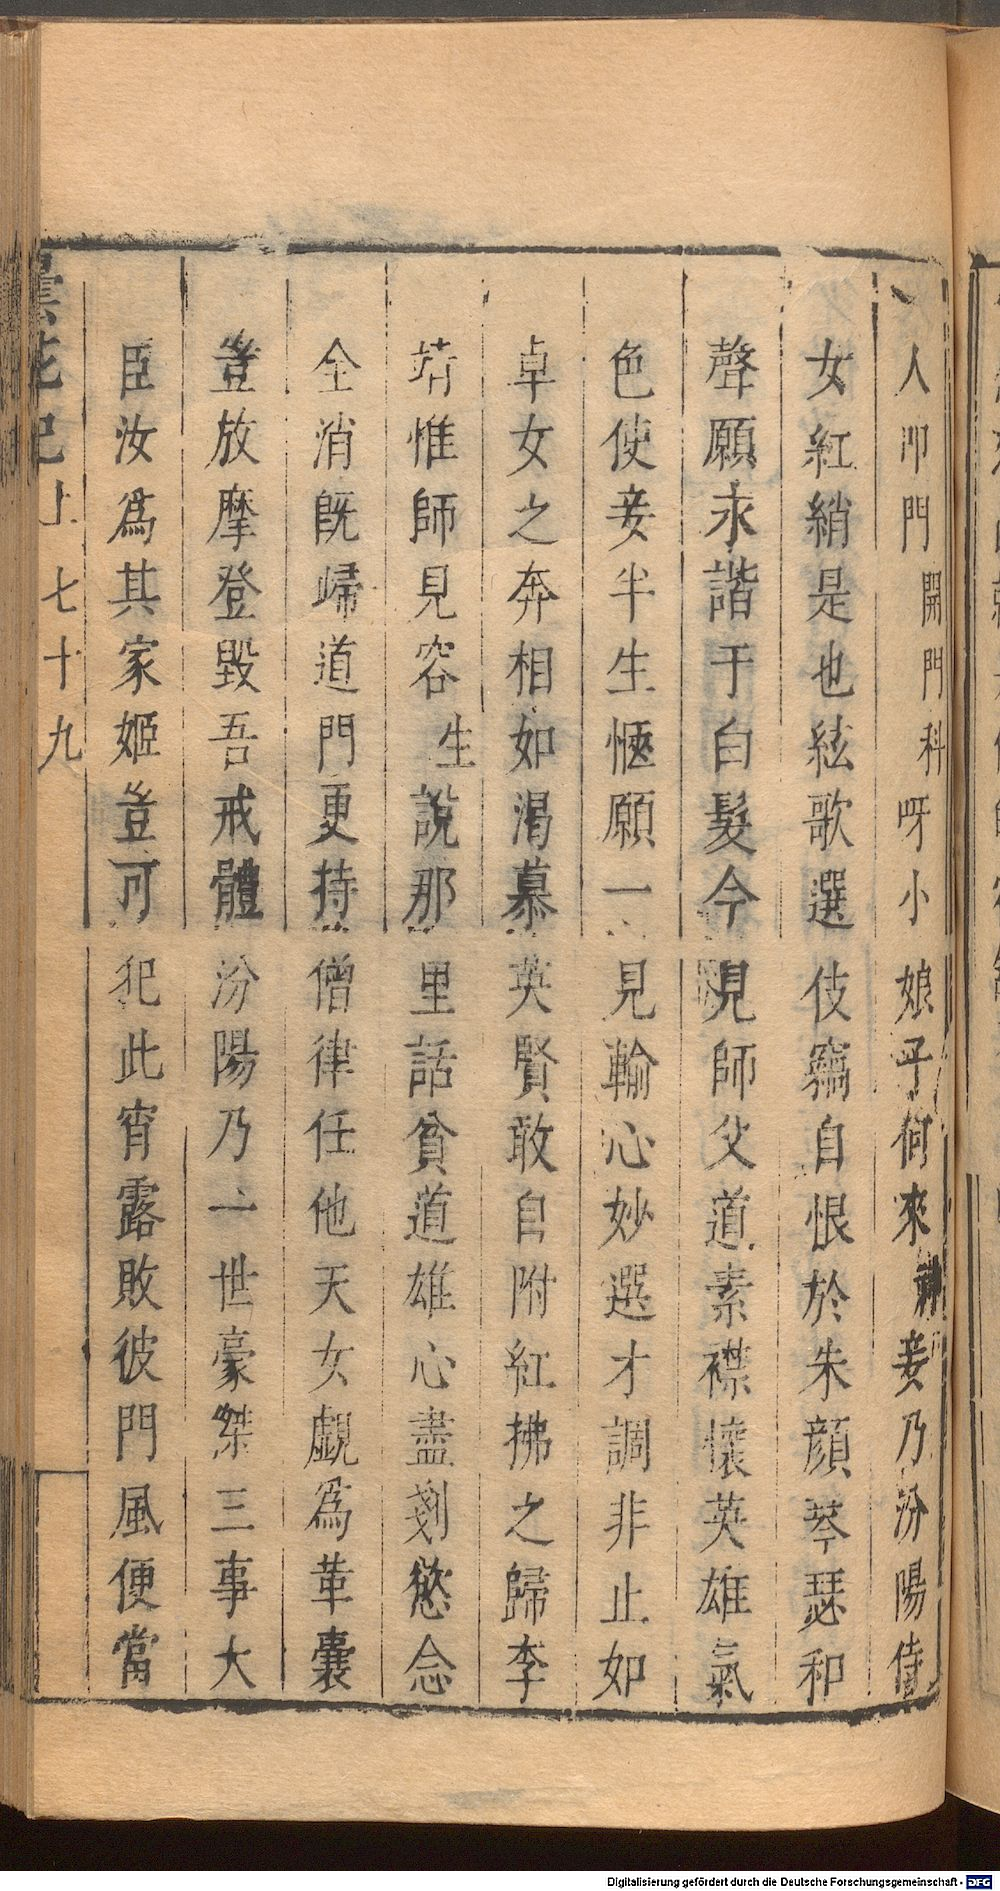 人叩門開門科呀小娘子何來神妾乃汾陽侍
女紅綃是也絃歌選伎竊自恨於朱顔琴瑟和
聲願永諧于白髮今見師父道素襟懷英雄氣
色使妾半生愜願一見輸心妙選才調非止如
卓女之奔相如渴慕英賢敢自附紅拂之歸李
靖惟師見容生說那里話貧道雄心盡剗慾念
全消既歸道門更持僧律任他天女覷爲革囊
豈放摩登毀吾戒體汾陽乃一世豪桀三事大
臣汝爲其家姬豈可犯此宵露敗彼門風便當
曇花記上七十九
Digitalisierung gefördert durch die Deutsche Forschungsgemeinschaft - DFG